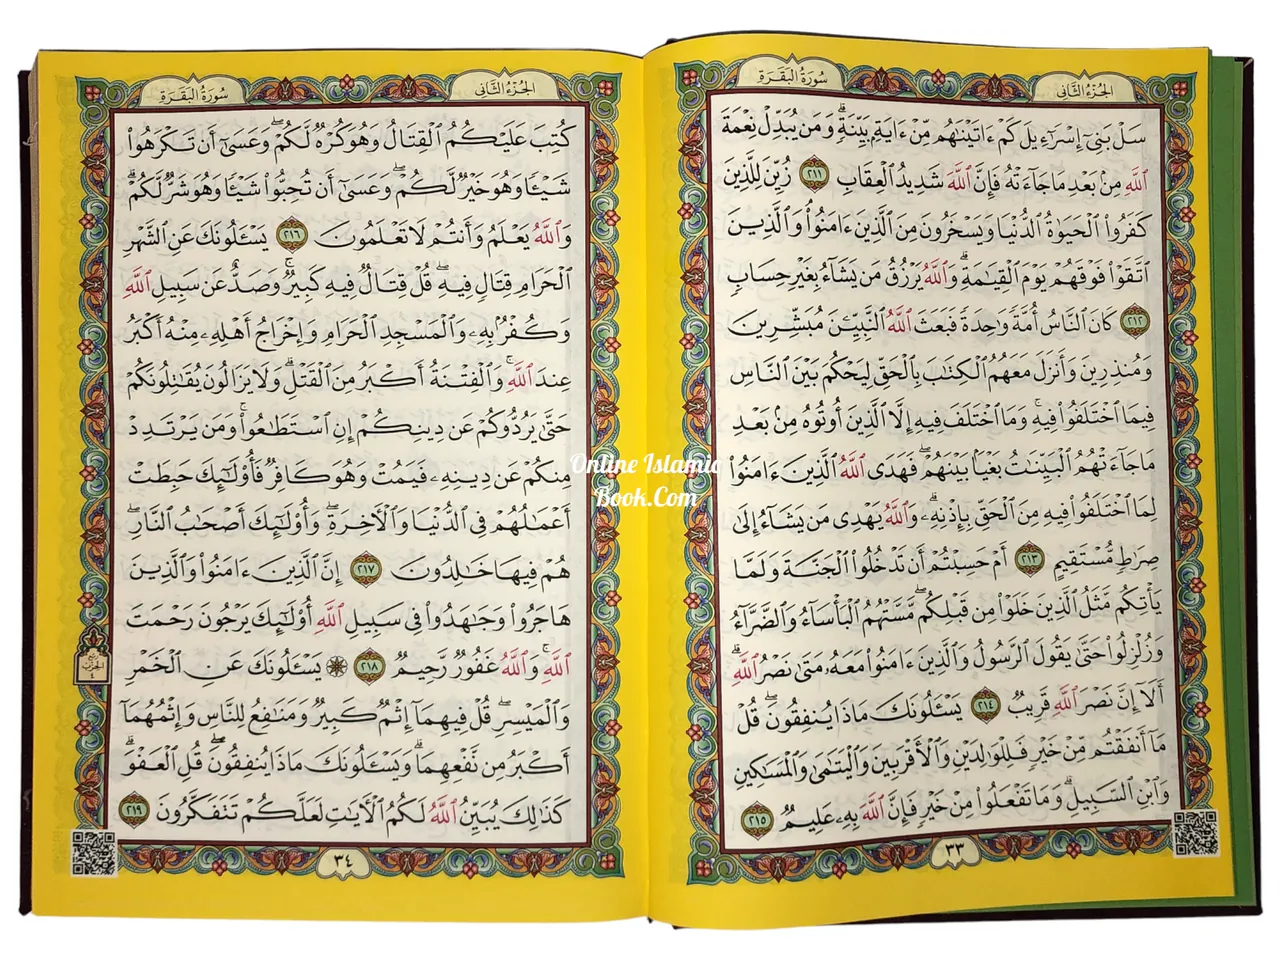 سُورَةُ البَقَرَةِ
الجُزْءُ الثَّانِي
سَلْ بَنِىٓ إِسْرَٰٓءِيلَ كَمْ ءَاتَيْنَٰهُم مِّنْ ءَايَةِۭ بَيِّنَةٍۗ وَمَن يُبَدِّلْ نِعْمَةَ
ٱللَّهِ مِنۢ بَعْدِ مَا جَآءَتْهُ فَإِنَّ ٱللَّهَ شَدِيدُ ٱلْعِقَابِ ٢١١ زُيِّنَ لِلَّذِينَ
كَفَرُوا۟ ٱلْحَيَوٰةُ ٱلدُّنْيَا وَيَسْخَرُونَ مِنَ ٱلَّذِينَ ءَامَنُوا۟ۘ وَٱلَّذِينَ
ٱتَّقَوْا۟ فَوْقَهُمْ يَوْمَ ٱلْقِيَٰمَةِۗ وَٱللَّهُ يَرْزُقُ مَن يَشَآءُ بِغَيْرِ حِسَابٍ
٢١٢ كَانَ ٱلنَّاسُ أُمَّةً وَٰحِدَةً فَبَعَثَ ٱللَّهُ ٱلنَّبِيِّۦنَ مُبَشِّرِينَ
وَمُنذِرِينَ وَأَنزَلَ مَعَهُمُ ٱلْكِتَٰبَ بِٱلْحَقِّ لِيَحْكُمَ بَيْنَ ٱلنَّاسِ
فِيمَا ٱخْتَلَفُوا۟ فِيهِۚ وَمَا ٱخْتَلَفَ فِيهِ إِلَّا ٱلَّذِينَ أُوتُوهُ مِنۢ بَعْدِ
مَا جَآءَتْهُمُ ٱلْبَيِّنَٰتُ بَغْيَۢا بَيْنَهُمْۖ فَهَدَى ٱللَّهُ ٱلَّذِينَ ءَامَنُوا۟
لِمَا ٱخْتَلَفُوا۟ فِيهِ مِنَ ٱلْحَقِّ بِإِذْنِهِۦۗ وَٱللَّهُ يَهْدِى مَن يَشَآءُ إِلَىٰ
صِرَٰطٍ مُّسْتَقِيمٍ ٢١٣ أَمْ حَسِبْتُمْ أَن تَدْخُلُوا۟ ٱلْجَنَّةَ وَلَمَّا
يَأْتِكُم مَّثَلُ ٱلَّذِينَ خَلَوْا۟ مِن قَبْلِكُمۖ مَّسَّتْهُمُ ٱلْبَأْسَآءُ وَٱلضَّرَّآءُ
وَزُلْزِلُوا۟ حَتَّىٰ يَقُولَ ٱلرَّسُولُ وَٱلَّذِينَ ءَامَنُوا۟ مَعَهُۥ مَتَىٰ نَصْرُ ٱللَّهِۗ
أَلَآ إِنَّ نَصْرَ ٱللَّهِ قَرِيبٌ ٢١٤ يَسْـَٔلُونَكَ مَاذَا يُنفِقُونَۖ قُلْ
مَآ أَنفَقْتُم مِّنْ خَيْرٍ فَلِلْوَٰلِدَيْنِ وَٱلْأَقْرَبِينَ وَٱلْيَتَٰمَىٰ وَٱلْمَسَٰكِينِ
وَٱبْنِ ٱلسَّبِيلِۗ وَمَا تَفْعَلُوا۟ مِنْ خَيْرٍ فَإِنَّ ٱللَّهَ بِهِۦ عَلِيمٌ ٢١٥
٣٣
سُورَةُ البَقَرَةِ
الجُزْءُ الثَّانِي
كُتِبَ عَلَيْكُمُ ٱلْقِتَالُ وَهُوَ كُرْهٌ لَّكُمْۖ وَعَسَىٰٓ أَن تَكْرَهُوا۟
شَيْـًٔا وَهُوَ خَيْرٌ لَّكُمْۖ وَعَسَىٰٓ أَن تُحِبُّوا۟ شَيْـًٔا وَهُوَ شَرٌّ لَّكُمْۗ
وَٱللَّهُ يَعْلَمُ وَأَنتُمْ لَا تَعْلَمُونَ ٢١٦ يَسْـَٔلُونَكَ عَنِ ٱلشَّهْرِ
ٱلْحَرَامِ قِتَالٍ فِيهِۖ قُلْ قِتَالٌ فِيهِ كَبِيرٌۖ وَصَدٌّ عَن سَبِيلِ ٱللَّهِ
وَكُفْرٌۢ بِهِۦ وَٱلْمَسْجِدِ ٱلْحَرَامِ وَإِخْرَاجُ أَهْلِهِۦ مِنْهُ أَكْبَرُ
عِندَ ٱللَّهِۚ وَٱلْفِتْنَةُ أَكْبَرُ مِنَ ٱلْقَتْلِۗ وَلَا يَزَالُونَ يُقَٰتِلُونَكُمْ
حَتَّىٰ يَرُدُّوكُمْ عَن دِينِكُمْ إِنِ ٱسْتَطَٰعُوا۟ۚ وَمَن يَرْتَدِدْ
مِنكُمْ عَن دِينِهِۦ فَيَمُتْ وَهُوَ كَافِرٌ فَأُو۟لَٰٓئِكَ حَبِطَتْ
أَعْمَٰلُهُمْ فِى ٱلدُّنْيَا وَٱلْـَٔاخِرَةِۖ وَأُو۟لَٰٓئِكَ أَصْحَٰبُ ٱلنَّارِۖ
هُمْ فِيهَا خَٰلِدُونَ ٢١٧ إِنَّ ٱلَّذِينَ ءَامَنُوا۟ وَٱلَّذِينَ
هَاجَرُوا۟ وَجَٰهَدُوا۟ فِى سَبِيلِ ٱللَّهِ أُو۟لَٰٓئِكَ يَرْجُونَ رَحْمَتَ
ٱللَّهِۚ وَٱللَّهُ غَفُورٌ رَّحِيمٌ ٢١٨ ۞ يَسْـَٔلُونَكَ عَنِ ٱلْخَمْرِ
وَٱلْمَيْسِرِۖ قُلْ فِيهِمَآ إِثْمٌ كَبِيرٌ وَمَنَٰفِعُ لِلنَّاسِ وَإِثْمُهُمَآ
أَكْبَرُ مِن نَّفْعِهِمَاۗ وَيَسْـَٔلُونَكَ مَاذَا يُنفِقُونَۖ قُلِ ٱلْعَفْوَۗ
كَذَٰلِكَ يُبَيِّنُ ٱللَّهُ لَكُمُ ٱلْـَٔايَٰتِ لَعَلَّكُمْ تَتَفَكَّرُونَ ٢١٩
ربع
الحزب
٤
٣٤
Online Islamic
Book.Com